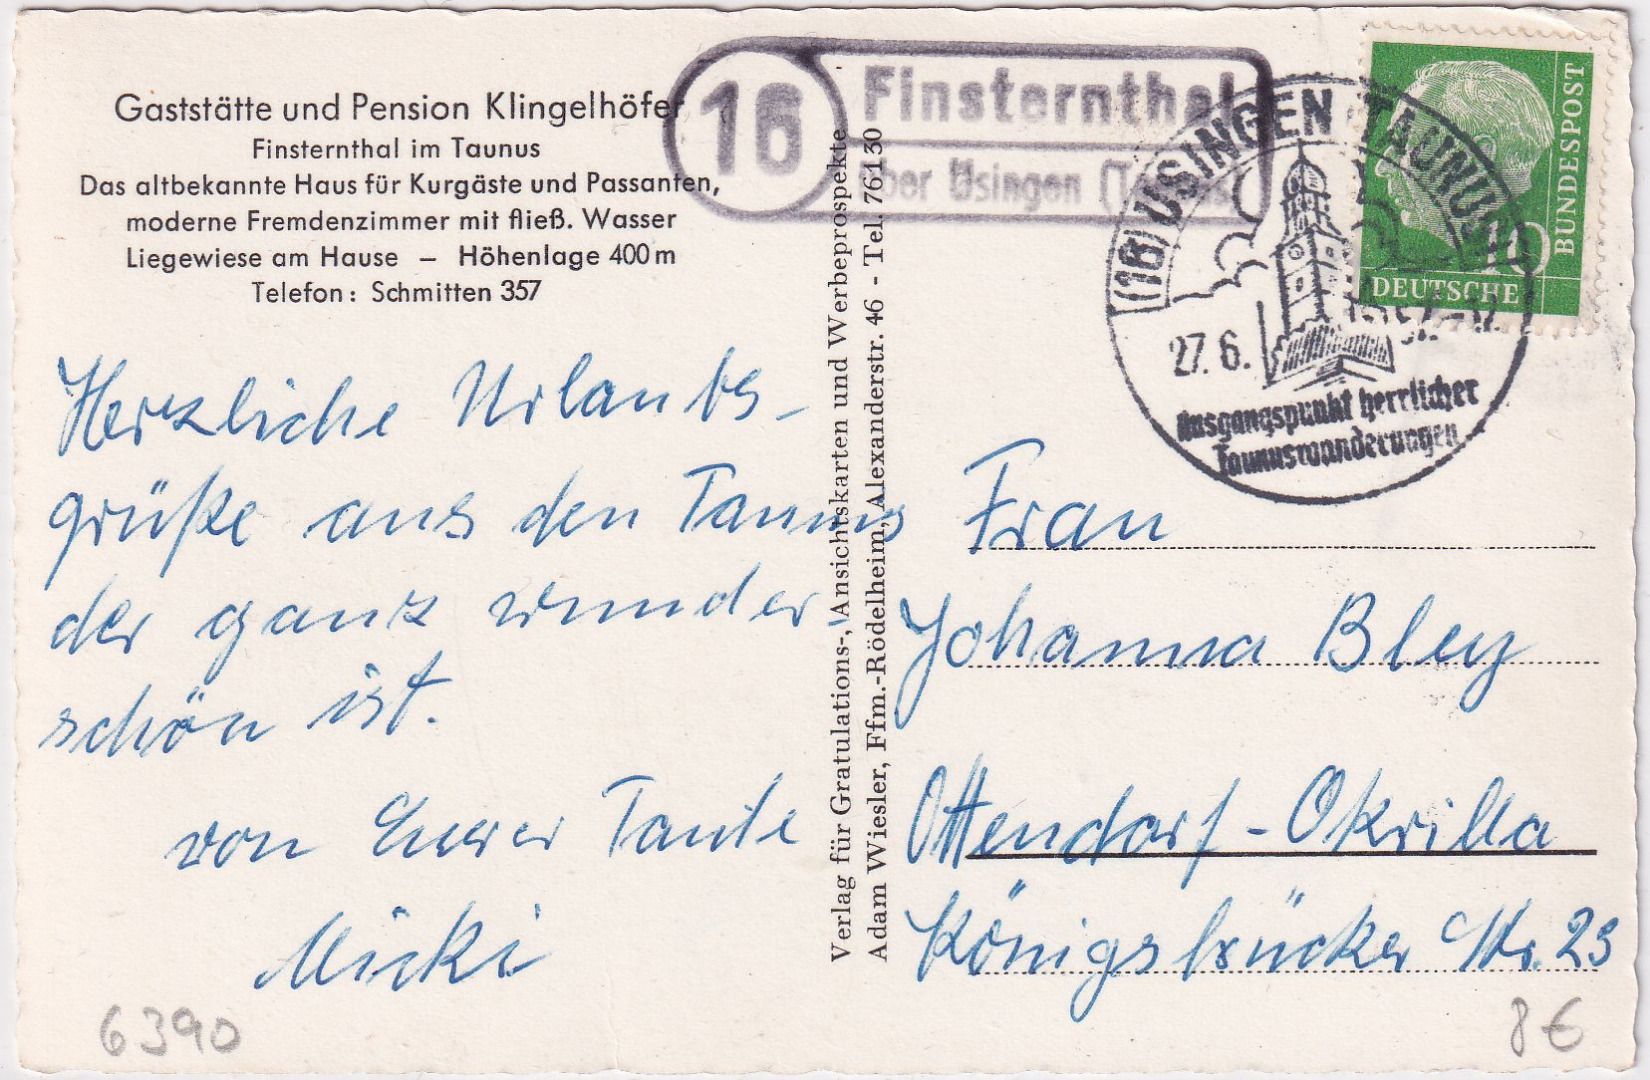 Gaststätte und Pension Klingelhöfer
Finsternthal im Taunus
Das altbekannte Haus für Kurgäste und Passanten,
moderne Fremdenzimmer mit fließ. Wasser
Liegewiese am Hause – Höhenlage 400 m
Telefon: Schmitten 357
Herzliche Urlaubs-
grüße aus den Taunus
der ganz wunder
schön ist.
von Eurer Tante
Micki
6390
Verlag für Gratulations-, Ansichtskarten und Werbeprospekte
Adam Wiesler, Ffm.-Rödelheim, Alexanderstr. 46 - Tel. 76130
16
Finsternthal
über Usingen (Taunus)
(16) USINGEN (TAUNUS)
27. 6.
Ausgangspunkt herrlicher
Tauniswanderungen
10
DEUTSCHE
BUNDESPOST
Frau
Johanna Bley
Ottendorf-Okrilla
Königsbrücker Str. 23
8€